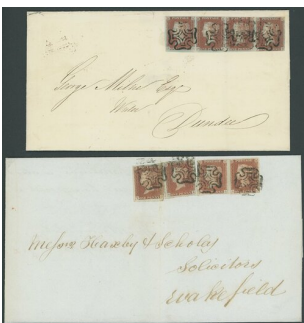 George Milne Esqr
Writer
Dundee
Messrs Haxby & Scholey
Solicitors
Wakefield